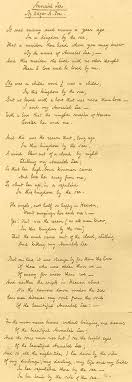 Annabel Lee.
By Edgar A. Poe.
It was many and many a year ago,
In a kingdom by the sea,
That a maiden there lived whom you may know
By the name of Annabel Lee;
And this maiden she lived with no other thought
Than to love and be loved by me.
She was a child and I was a child,
In this kingdom by the sea,
But we loved with a love that was more than love
I and my Annabel Lee
With a love that the winged seraphs of Heaven
Coveted her and me.
And this was the reason that, long ago,
In this kingdom by the sea,
A wind blew out of a cloud by night
Chilling my Annabel Lee;
So that her high-born kinsmen came
And bore her away from me,
To shut her up, in a sepulchre
In this kingdom by the sea.
The angels, not half so happy in Heaven,
Went envying her and me;
Yes! that was the reason (as all men know,
In this kingdom by the sea)
That the wind came out of the cloud, chilling
And killing my Annabel Lee.
But our love it was stronger by far than the love
Of those who were older than we
Of many far wiser than we
And neither the angels in Heaven above
Nor the demons down under the sea
Can ever dissever my soul from the soul
Of the beautiful Annabel Lee:
For the moon never beams without bringing me dreams
Of the beautiful Annabel Lee;
And the stars never rise but I see the bright eyes
Of the beautiful Annabel Lee;
And so, all the night-tide, I lie down by the side
Of my darling, my darling, my life and my bride
In her sepulchre there by the sea
In her tomb by the side of the sea.